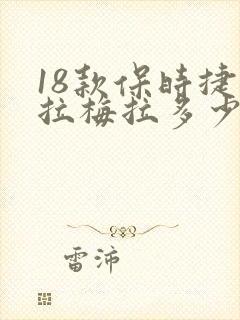 18款保时捷
拉梅拉多少
雷沛